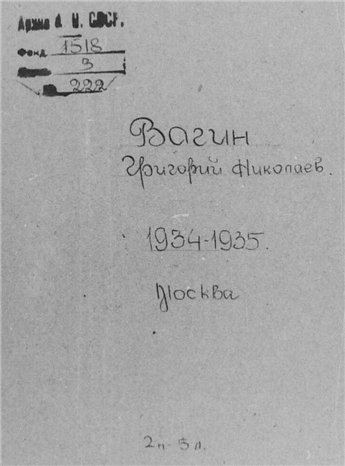 Архив А. Н. СССР.
Фонд 1518
3
222
Вагин
Григорий Николаев.
1934-1935.
Москва
2п. 3л.